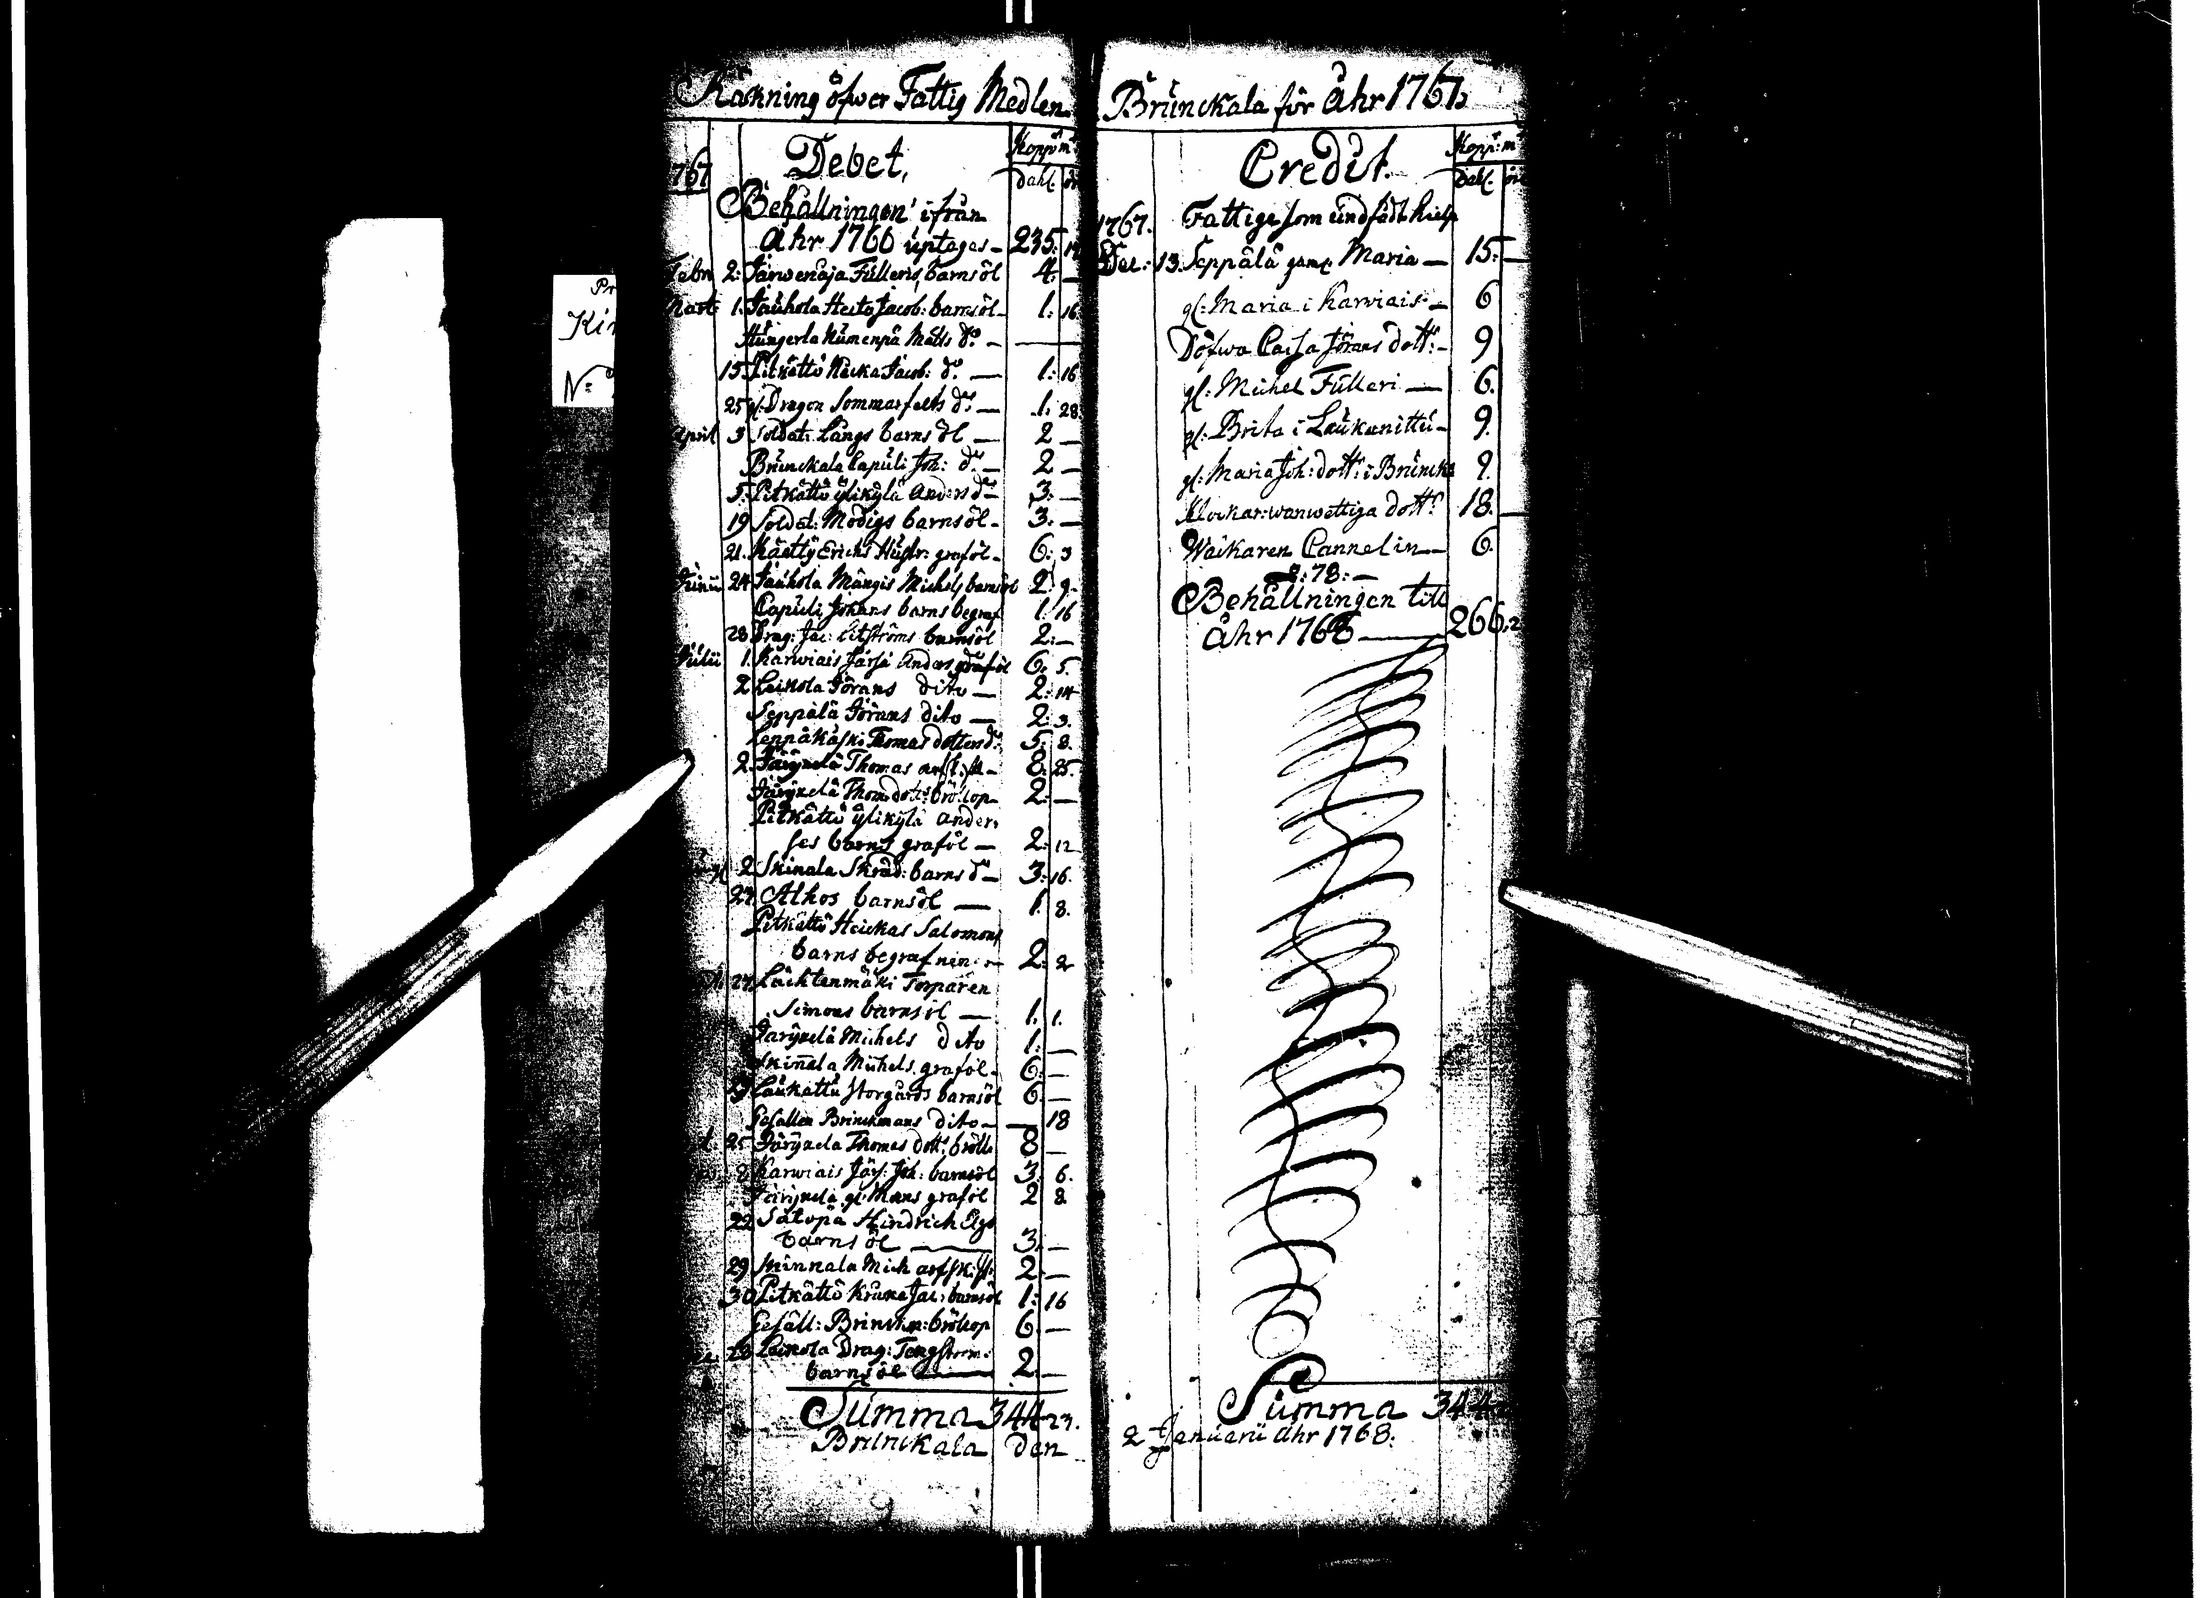 Räkning öfwer Fattig Medlen
767
Debet,
Kopp: m:t
Dahl. ör
Behållningen ifrån
åhr 1766 uptages — 235:
Febr 2: Järwenoja Fülleris, barnsöl 4: —
Mart: 1. Jauhola Heita Jacob: barnsöl — 1: 16.
Hüngerla Nümenpä Matts d:o — —
15. Pitkättö Jacob: d:o — 1: 16
25 gl: Dragon Sommarfelts d:o — 1: 28.
April 3 Soldat: Långs barns öl — 2 —
Brünckala Capüli Joh: d:o — 2 —
5. Pitkättö ÿlikÿlä Anders d:o — 3: —
19 Soldat: Modigs barnsöl — 3: —
21. Erichs Hüstr: graföl — 6: 3
Junii 24 Jauhola Mångis Michels barnsöl 2: 9.
Capüli Johans barns begraf 1: 16
28 Drag: Jac: barnsöl 2: —
Julii 1. Karwiais Järfi Anders graföl 6: 5.
2 Leinola Jörans dito — 2: 14
Seppälä Jörans dito — 2: 3.
Leppäkåski Thomas dotters d:o 5: 8.
2. Järÿnelä Thomas — 8: 25.
Järÿnelä Thom: dott:s bröllop — 2: —
Pitkättö ÿlikÿlä Anders
ses barns graföl — 2: 12
2 Skinala Skräd: barns d:o — 3: 16.
27 Alhos barnsöl — 1. 8.
Pitkättö Heickas Salomons
barns begrafnin: — 2: 2
27. Lächtenmäki Torparen
Simons barnsöl — 1. 1.
Järÿnelä Michels dito 1: —
Skinnala Michels graföl — 6: —
Laükattü Storgårds barnsöl 6 —
Gesällen Brinckmans dito — — 18
25 Järÿnela Thomas dott:s bröllo 8 —
8 Karwiais Järf: Joh: barnsöl 3: 6.
Järÿnelä gl: Mans graföl 2 8
22 Sätopä Hindrich
barnsöl — 3: —
29 Skinnala Mich arfskift: 2: —
30 Pitkättö Jac: barnsöl 1: 16
Gesäll: Brinckm: bröllop 6: —
Leinola Drag: Tengström:
barnsöl — 2. —
Summa 344 23.
Brünckala den
Brünckala för åhr 1767.
Credit.
Kopp: m:t
Dahl. ör
1767. Fattige som ündfådt hielp
Dec: 13. Seppälä gaml Maria — 15: —
gl: Maria i Karwiais: — 6
Döfwa Caisa Jörans dott: — 9
gl: Michel Fülleri — 6.
gl: Brita i Laükanittü — 9.
gl: Maria Joh: dott: i Brünck 9.
Klockar: wanwettiga dott:r 18. —
Wäikaren Cannelin — 6.
: 78: —
Behållningen till
åhr 1768 — 266:
Summa 344
2 Januarii åhr 1768:
Kir
N:o